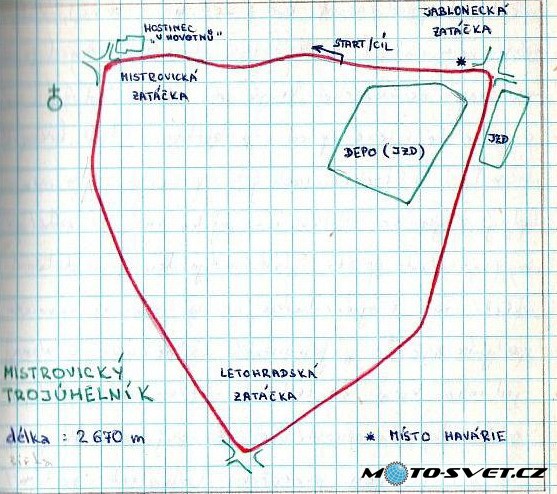 HOSTINEC
"U NOVOTNŮ"
START/CÍL
JABLONECKÁ
ZATÁČKA
*
MISTROVICKÁ
ZATÁČKA
DEPO (JZD)
JZD
LETOHRADSKÁ
ZATÁČKA
MISTROVICKÝ
TROJÚHELNÍK
délka : 2 670 m
* MÍSTO HAVÁRIE
MOTO-SVET.CZ